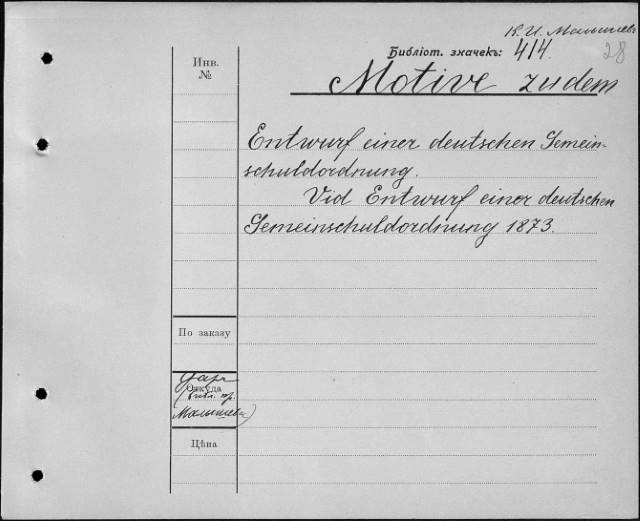 К. И. Малышевъ
28
Библіот. значекъ: 414.
Инв.
№
Motive zu dem
Entwurf einer deutschen Gemein-
schuldordnung.
Vid Entwurf einer deutschen
Gemeinschuldordnung 1873.
По заказу
Даръ
Откуда
(библ. пр.
Малышева)
Цѣна